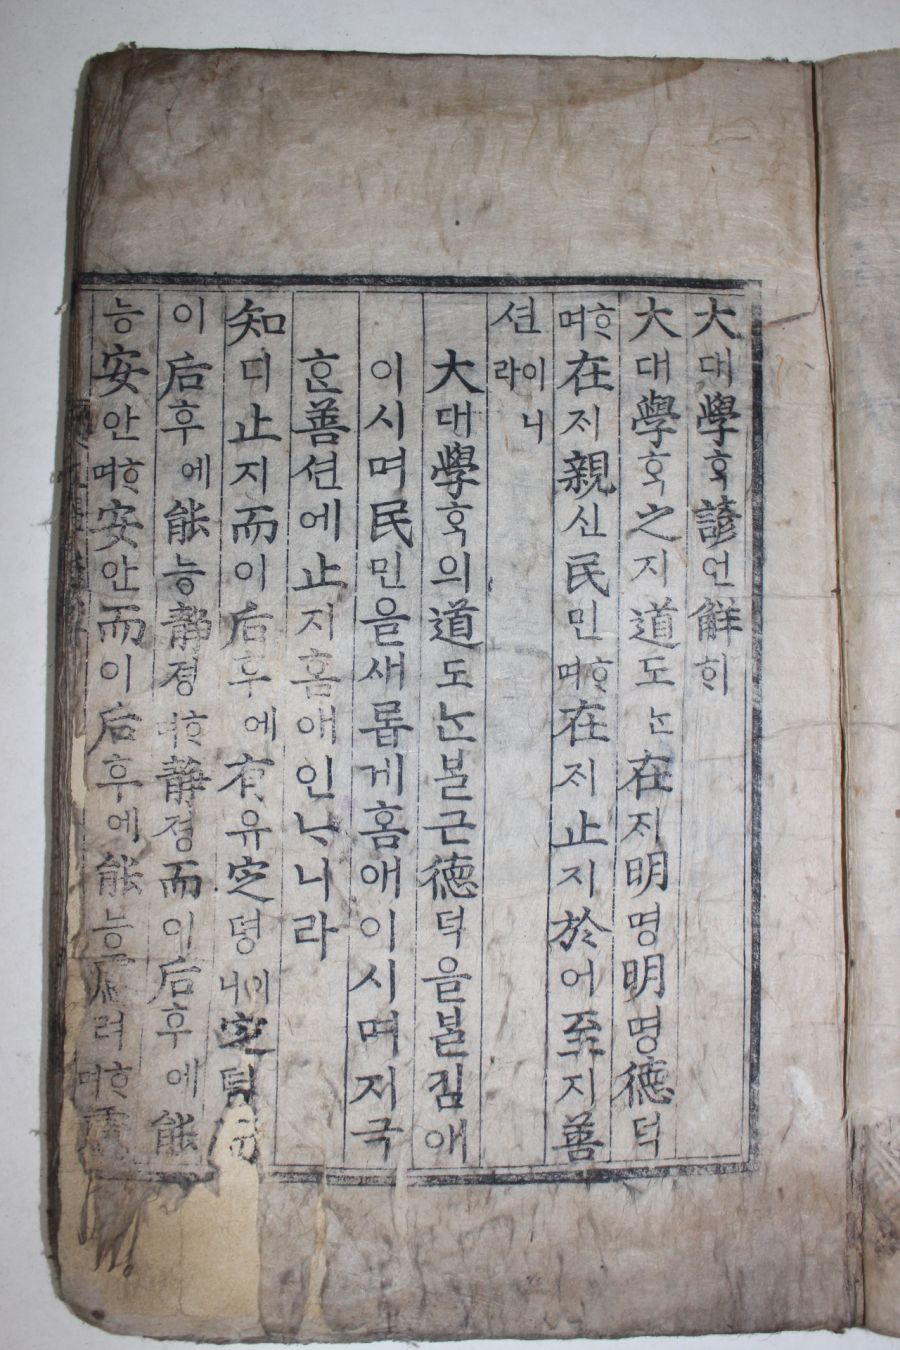 大대學ᄒᆞᆨ諺언解ᄒᆡ
大대學ᄒᆞᆨ之지道도ᄂᆞᆫ在ᄌᆡ明명明명德덕
ᄒᆞ며在ᄌᆡ親신民민ᄒᆞ며在ᄌᆡ止지於어至지善
션이니라
大대學ᄒᆞᆨ의道도ᄂᆞᆫᄇᆞᆯ근德덕을ᄇᆞᆯ킴애
이시며民민을새롭게홈애이시며지극
ᄒᆞᆫ善션에止지홈애인ᄂᆞ니라
知디止지而이后후에有유定뎡이니定뎡
이后후에能능静졍ᄒᆞ며静졍而이后후에能
능安안ᄒᆞ며安안而이后후에能능慮려ᄒᆞ며慮